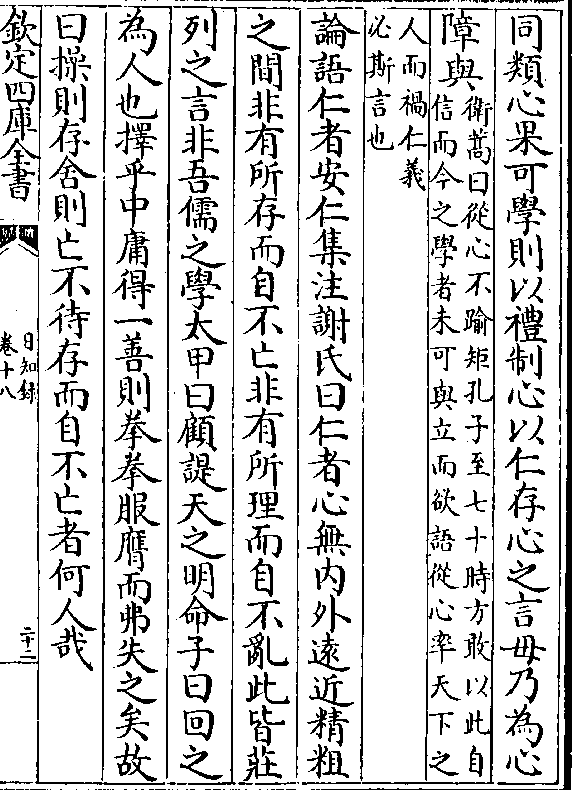 同類心果可學則以禮制心以仁存心之言毋乃為心
障與
衛嵩曰從心不踰矩孔子至七十時方敢以此自
信而今之學者未可與立而欲語從心率天下之
人而禍仁義
必斯言也
論語仁者安仁集注謝氏曰仁者心無内外遠近精粗
之間非有所存而自不亡非有所理而自不亂此皆莊
列之言非吾儒之學太甲曰顧諟天之明命子曰回之
為人也擇乎中庸得一善則拳拳服膺而弗失之矣故
曰操則存舍則亡不待存而自不亡者何人哉
欽定四庫全書
日知錄
卷十八
二十二